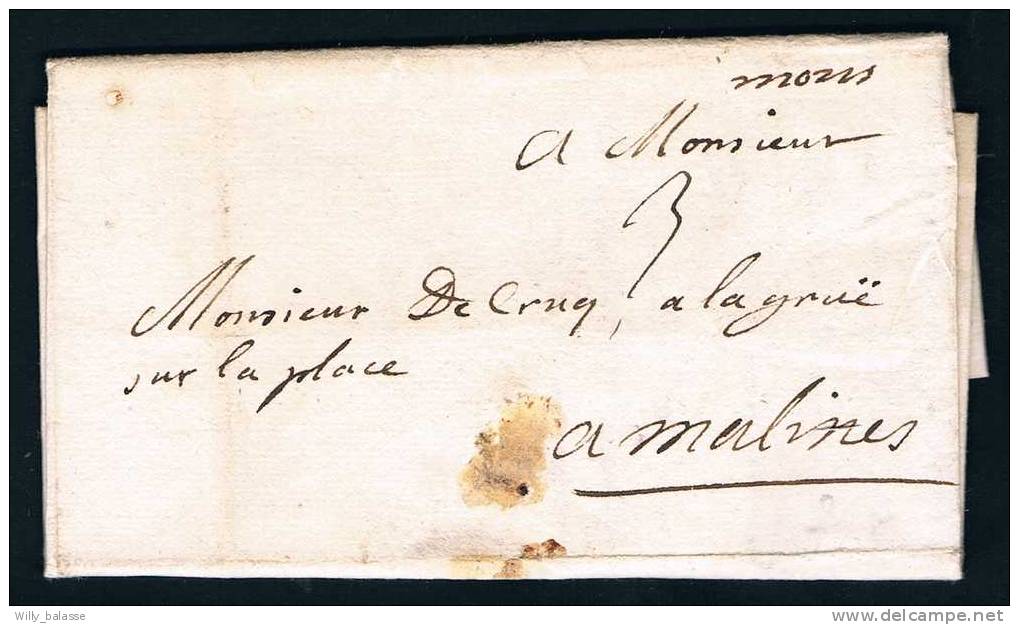 mons
A Monsieur
3
Monsieur De Cruq, a la gruë
sur la place
a malines
Willy_balasse
delcampe.net